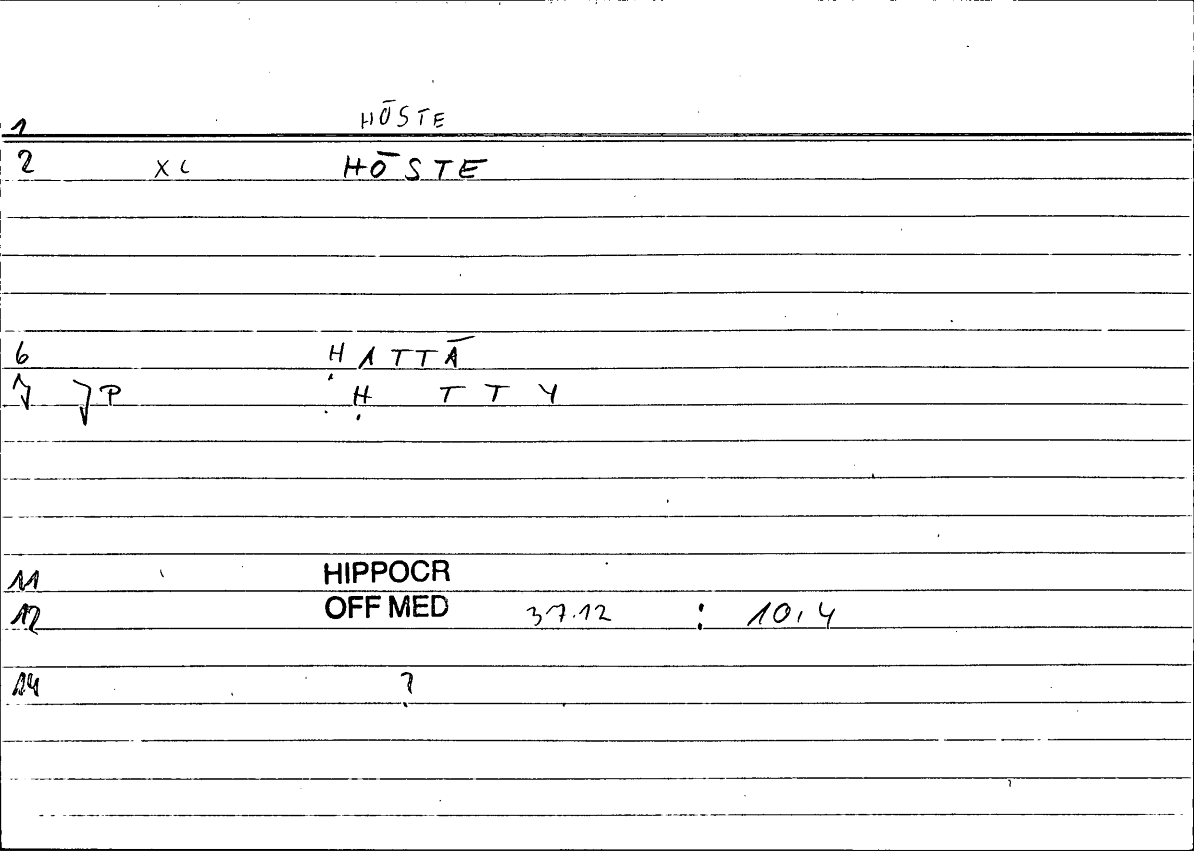 1 HŌSTE
2 XL HŌSTE
6 HATTĀ
7 P H TTY
11 HIPPOCR
12 OFF MED 37.12 : 10,4
14 ?